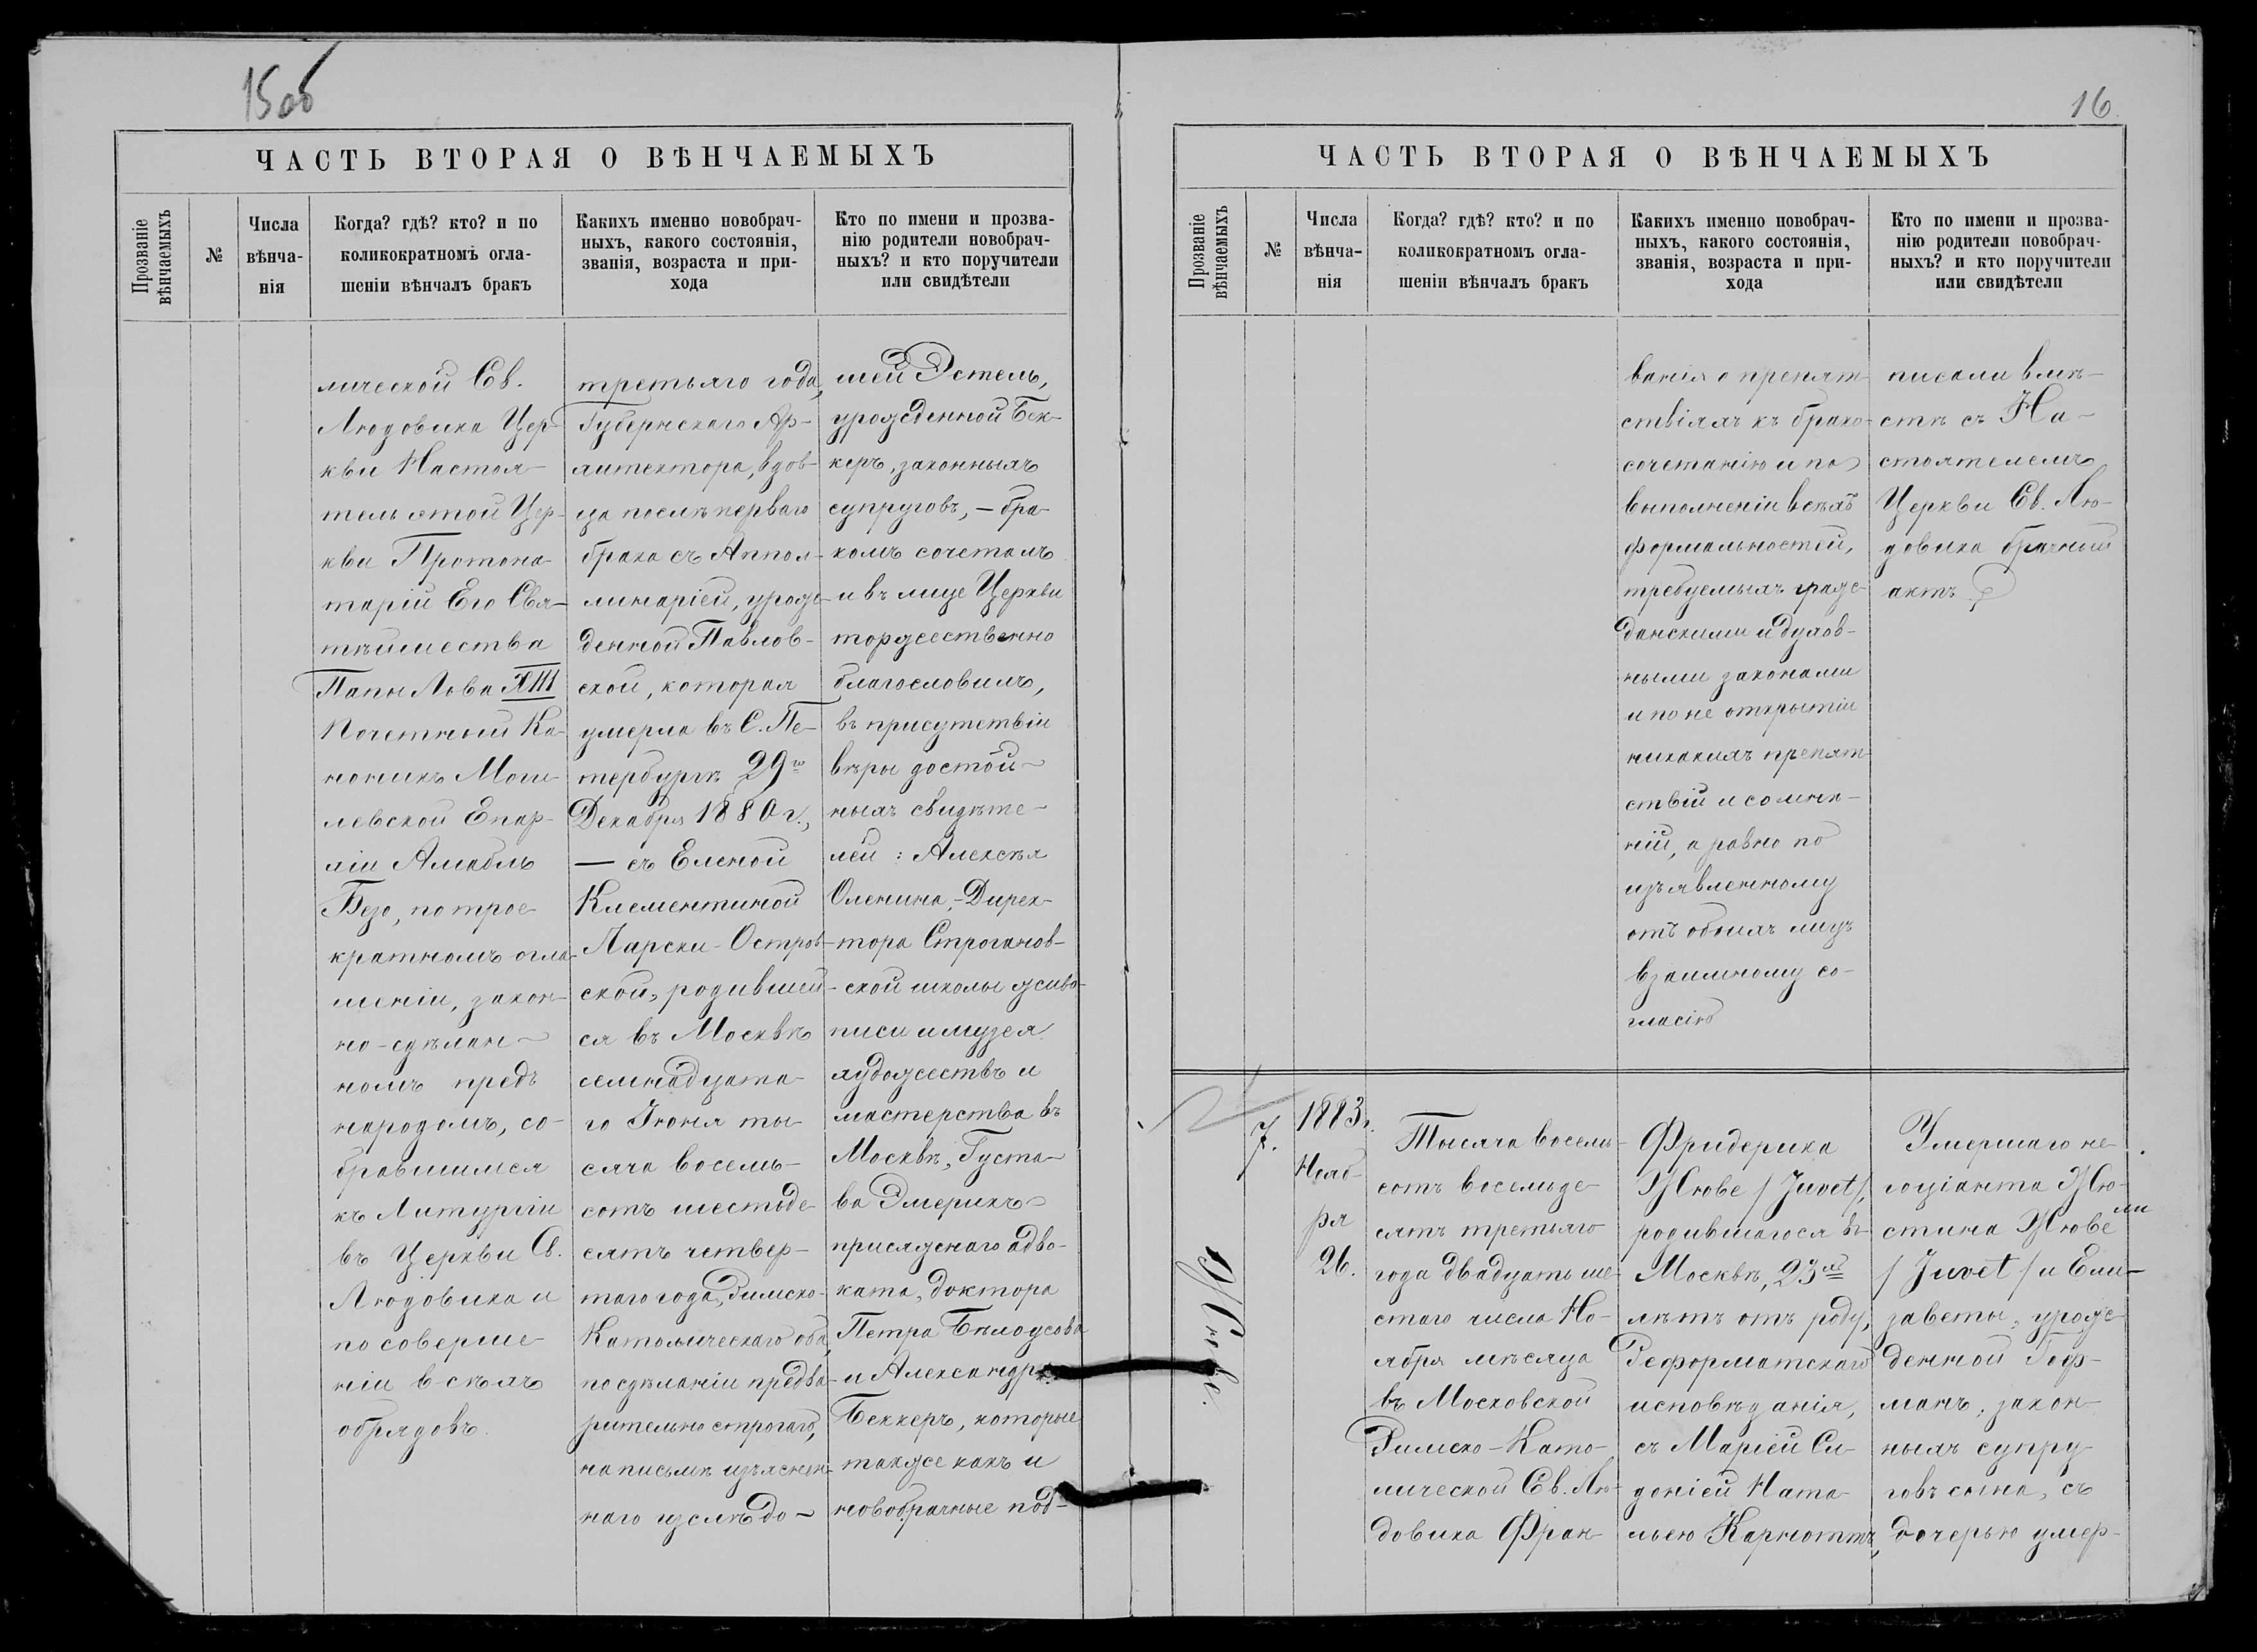 15об
ЧАСТЬ ВТОРАЯ О ВѢНЧАЕМЫХЪ
Прозваніе
вѣнчаемыхъ
№
Числа
вѣнча-
нія
Когда? гдѣ? кто? и по
коликократномъ огла-
шеніи вѣнчалъ бракъ
Какихъ именно новобрач-
ныхъ, какого состоянія,
званія, возраста и при-
хода
Кто по имени и прозва-
нію родители новобрач-
ныхъ? и кто поручители
или свидѣтели
лической Св.
Людовика Цер-
кви Настоя-
тель этой Цер-
кви Протона-
тарій Его Свя-
тѣйшества
Папы Льва XIII
Почетный Ка-
ноникъ Моги-
левской Епар-
хіи Амабль
Безо, по трое-
кратномъ огла-
шеніи, закон-
но-сдѣлан-
номъ предъ
народомъ, со-
бравшимся
къ Литургіи
въ Церкви Св.
Людовика и
по соверше-
ніи всѣхъ
обрядовъ.
третьяго года,
Губернскаго Ар-
хитектора, вдов-
ца послѣ перваго
брака съ Аппол-
линаріей, урож-
денной Павлов-
ской, которая
умерла въ С. Пе-
тербургѣ 29го
Декабря 1880 г.,
— съ Еленой
Клементиной
Ларски-Остров-
ской, родившей-
ся въ Москвѣ
семнадцата-
го Іюня ты-
сяча восемь-
сотъ шестьде-
сятъ четвер-
таго года, Римско-
Католическаго оба,
по сдѣланіи предва-
рительно строгаго,
на письмѣ изъяснен-
наго изслѣдо-
шей Эстель,
урожденной Бек-
керъ, законныхъ
супруговъ, — бра-
комъ сочеталъ
и въ лице Церкви
торжественно
благословилъ,
въ присутствіи
вѣры достой-
ныхъ свидѣте-
лей: Алексѣя
Оленина, - Дирек-
тора Строганов-
ской школы живо-
писи и музея
художествъ и
мастерства въ
Москвѣ, Густа-
ва Эмерихъ
присяжнаго адво-
ката, доктора
Петра Бѣлоусова
и Александра
Беккеръ, которые
также какъ и
новобрачные под-
16
ЧАСТЬ ВТОРАЯ О ВѢНЧАЕМЫХЪ
Прозваніе
вѣнчаемыхъ
№
Числа
вѣнча-
нія
Когда? гдѣ? кто? и по
коликократномъ огла-
шеніи вѣнчалъ бракъ
Какихъ именно новобрач-
ныхъ, какого состоянія,
званія, возраста и при-
хода
Кто по имени и прозва-
нію родители новобрач-
ныхъ? и кто поручители
или свидѣтели
ванія о препят-
ствіяхъ къ брако-
сочетанію и по
выполненіи всѣхъ
формальностей,
требуемыхъ граж-
данскими и духов-
ными законами
и по не открытіи
никакихъ препят-
ствій и сомнѣ-
ній, а равно по
изъявленному
отъ обоихъ лицъ
взаимному со-
гласію
писали вмѣ-
стѣ съ На-
стоятелемъ
Церкви Св. Лю-
довика брачный
актъ.
Жюве.
7.
1883 г.
Нояб-
ря
26.
Тысяча восемь-
сотъ восемьде-
сятъ третьяго
года двадцать ше-
стаго числа Но-
ября мѣсяца
въ Московской
Римско-Като-
лической Св. Лю-
довика Фран-
Фридерика
Жюве /Juvet/,
родившагося въ
Москвѣ, 23хъ
лѣтъ отъ роду,
Реформатскаго
исповѣданія,
съ Маріей Си-
доніей Ната-
льею Карноттъ,
Умершаго не-
гоціанта Жю-
стина Жюве
/Juvet/ и Ели-
заветы, урож-
денной Гоф-
манъ, закон-
ныхъ супру-
говъ сына, съ
дочерью умер-